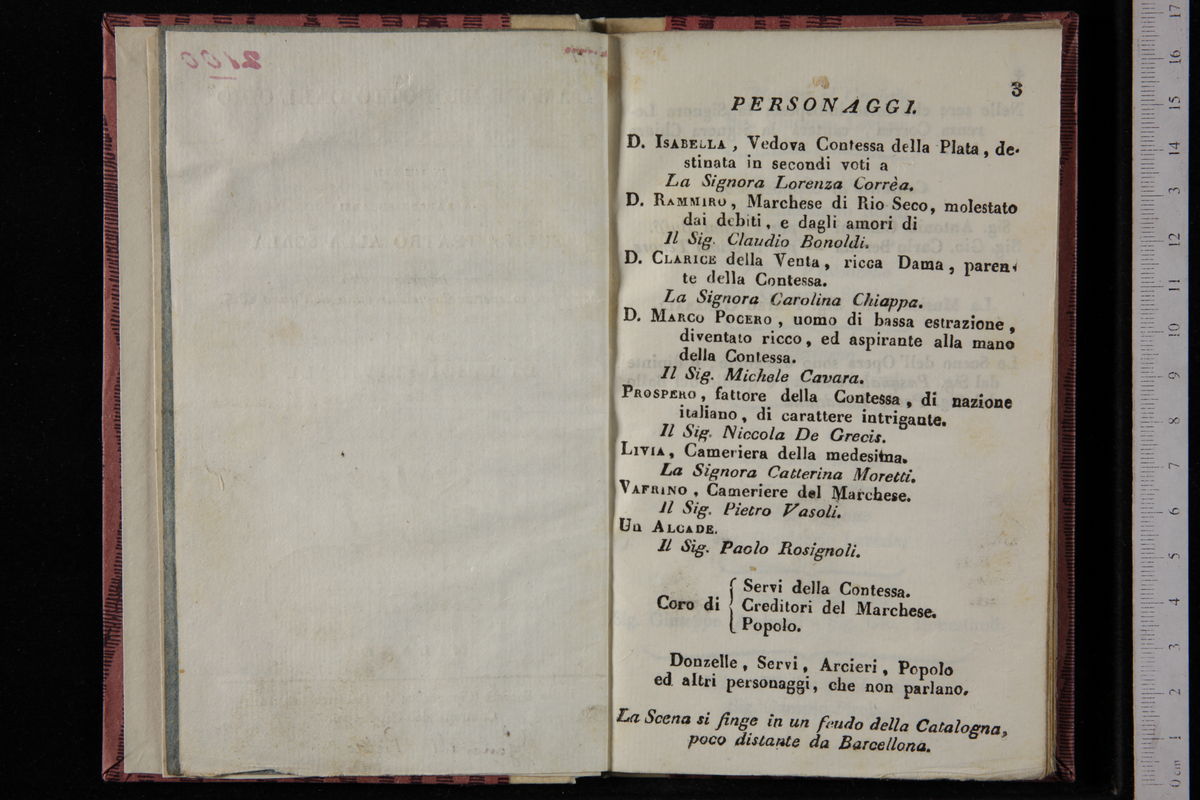 2100
3
PERSONAGGI.
D. ISABELLA, Vedova Contessa della Plata, de-
stinata in secondi voti a
La Signora Lorenza Corrèa.
D. RAMMIRO, Marchese di Rio Seco, molestato
dai debiti, e dagli amori di
Il Sig. Claudio Bonoldi.
D. CLARICE della Venta, ricca Dama, paren-
te della Contessa.
La Signora Carolina Chiappa.
D. MARCO POCERO, uomo di bassa estrazione,
diventato ricco, ed aspirante alla mano
della Contessa.
Il Sig. Michele Cavara.
PROSPERO, fattore della Contessa, di nazione
italiano, di carattere intrigante.
Il Sig. Niccola De Grecis.
LIVIA, Cameriera della medesima.
La Signora Catterina Moretti.
VAFRINO, Cameriere del Marchese.
Il Sig. Pietro Vasoli.
Un ALCADE.
Il Sig. Paolo Rosignoli.
Coro di { Servi della Contessa.
Creditori del Marchese.
Popolo.
Donzelle, Servi, Arcieri, Popolo
ed altri personaggi, che non parlano.
La Scena si finge in un feudo della Catalogna,
poco distante da Barcellona.
0 cm 1 2 3 4 5 6 7 8 9 10 11 12 13 14 15 16 17